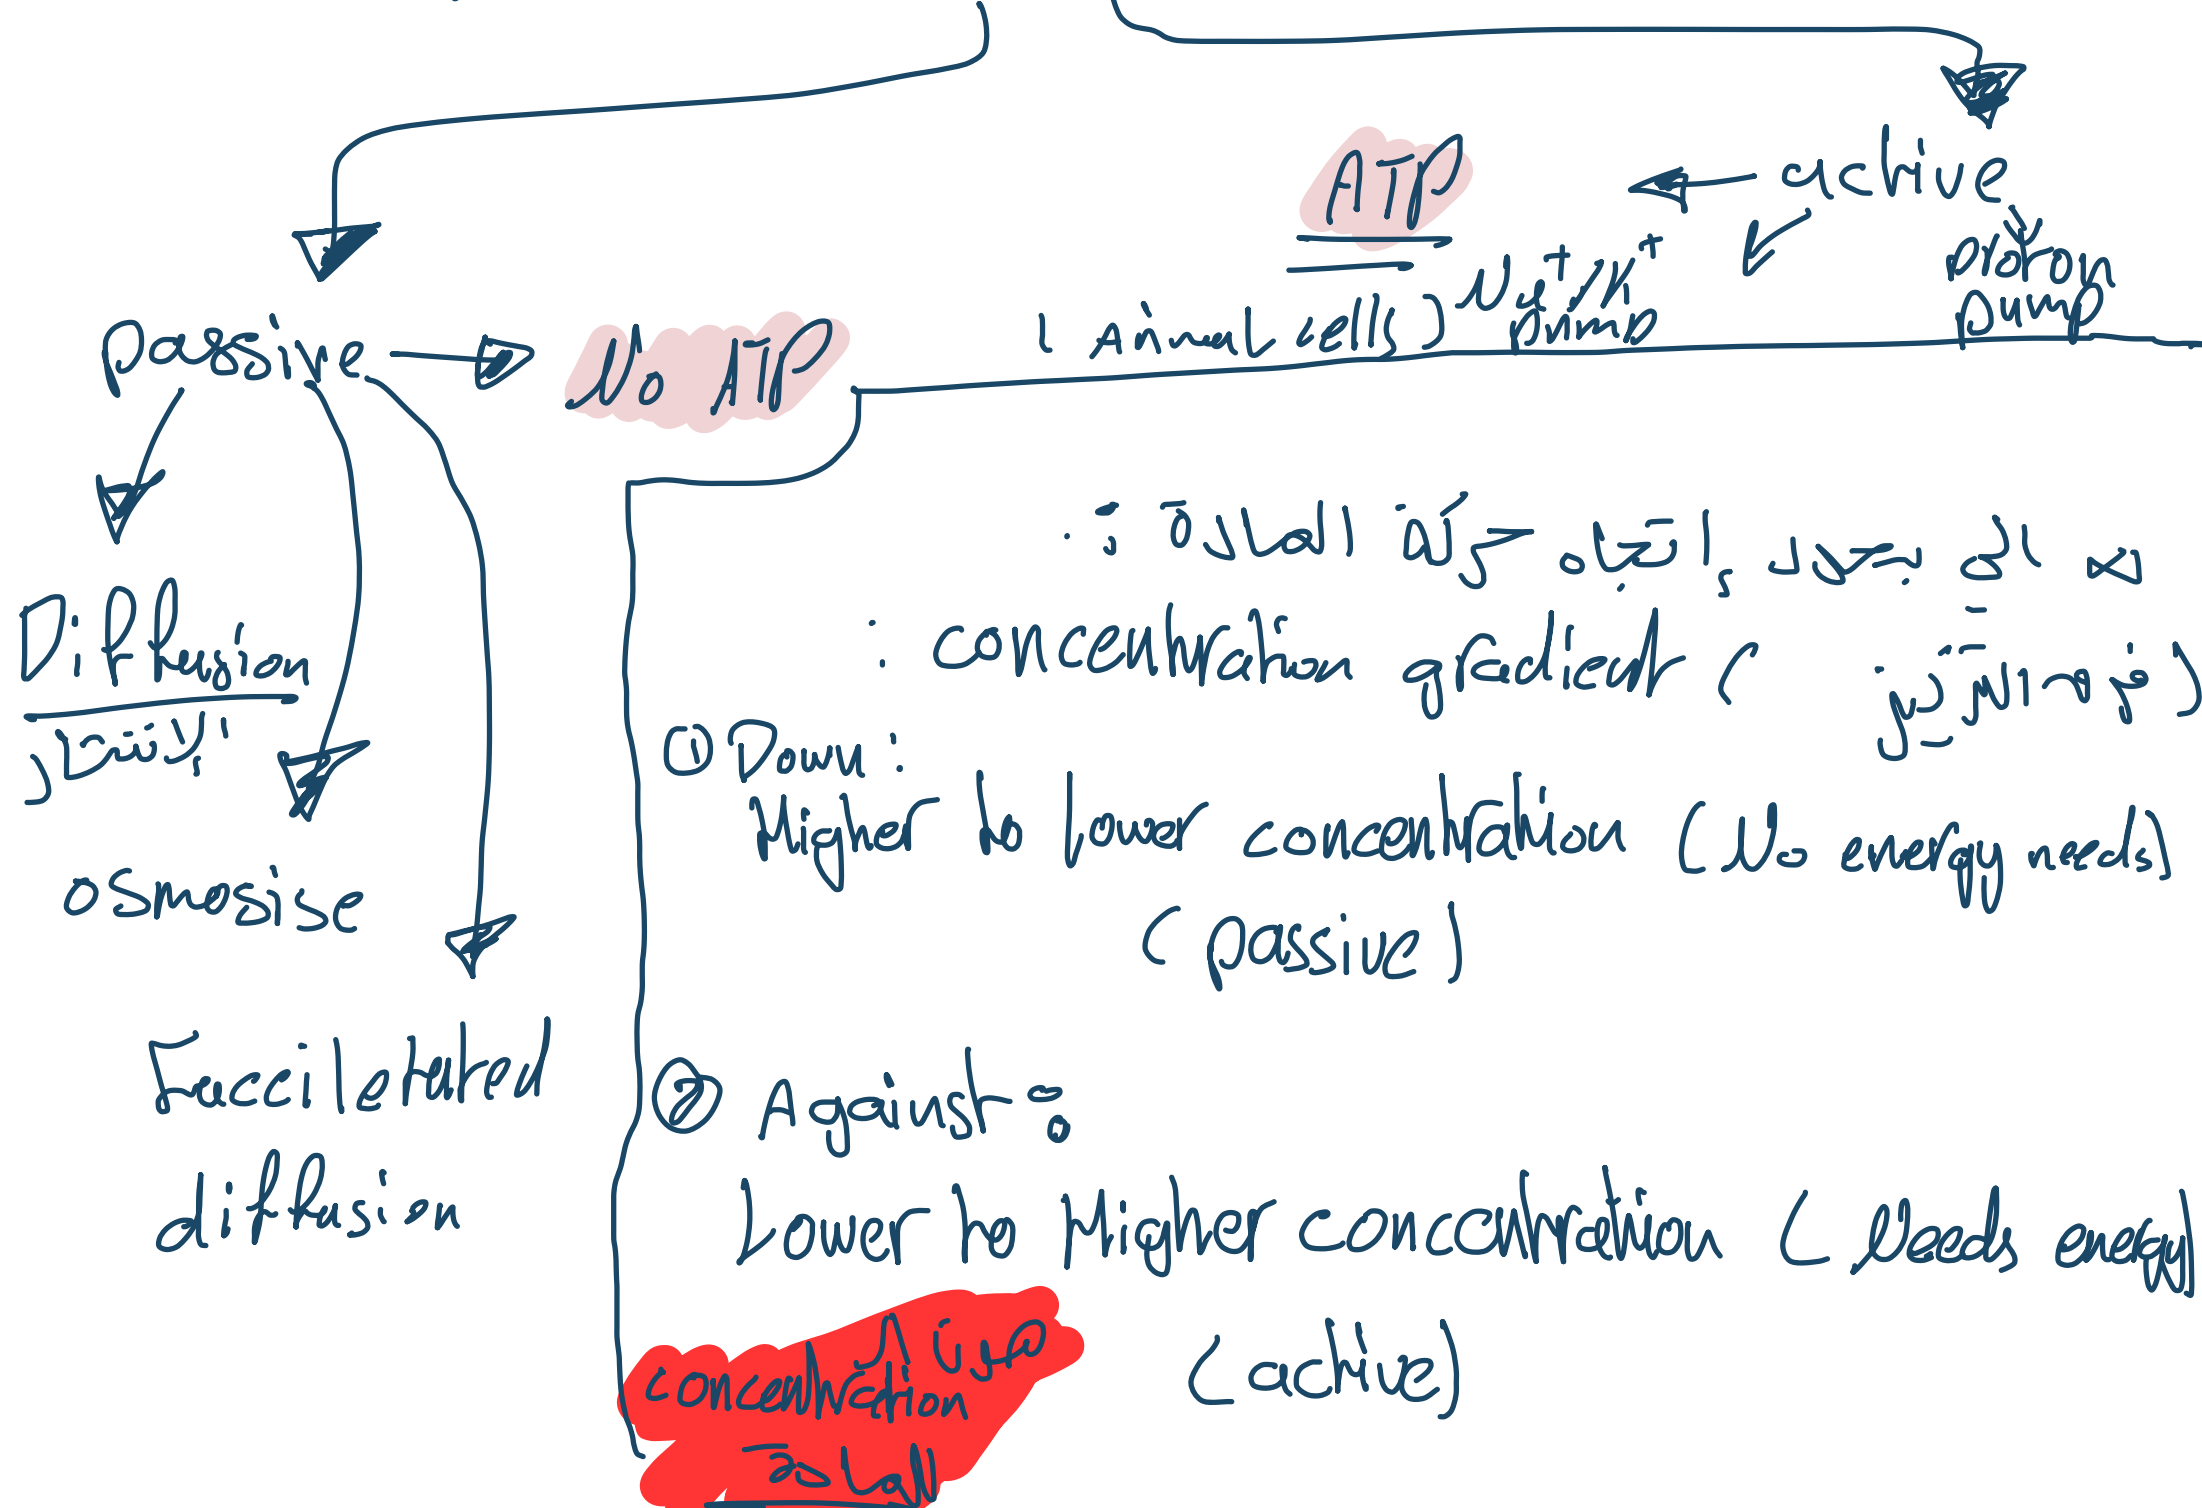 active
ATP
proton
pump
Na⁺/K⁺
pump
(Animal cells)
passive
No ATP
Diffusion
الإنتشار
osmosise
Facciletated
diffusion
الي يحدد إتجاه حركة المادة :
: concentration gradient (فرق التركيز)
① Down :
Higher to lower concentration (No energy needs)
(passive)
② Against :
Lower to Higher concentration (Needs energy)
(active)
concentration
المادة